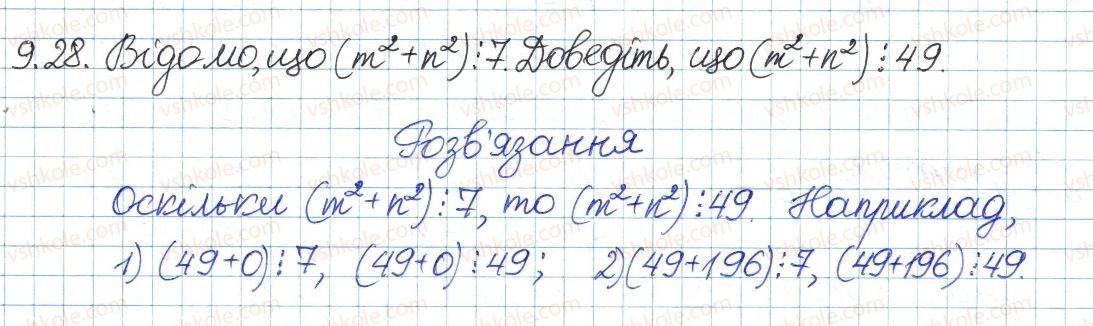 9.28. Відомо, що (m²+n²)⋮7. Доведіть, що (m²+n²)⋮49.
Розв'язання
Оскільки (m²+n²)⋮7, то (m²+n²)⋮49. Наприклад,
1) (49+0)⋮7, (49+0)⋮49; 2) (49+196)⋮7, (49+196)⋮49.